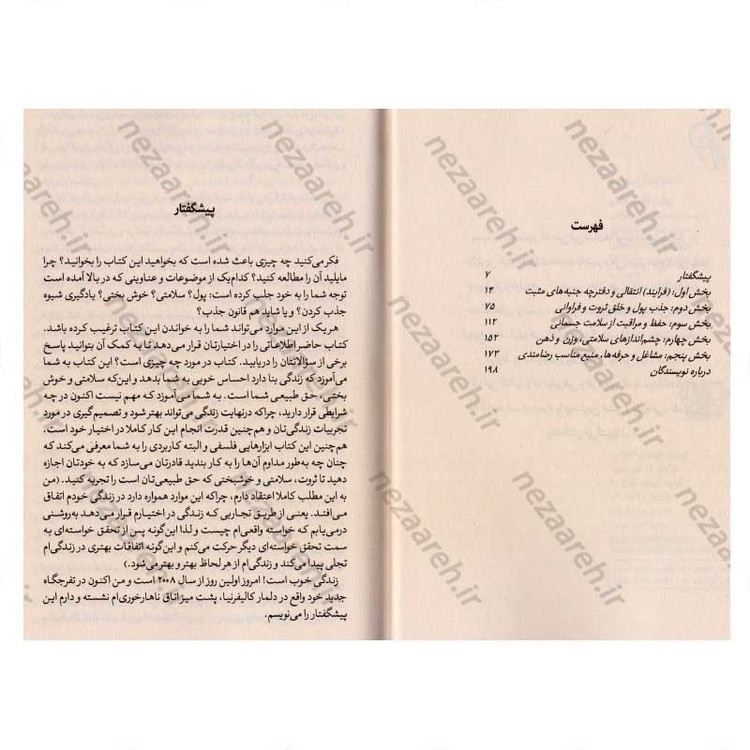 فهرست
پیشگفتار ۷
بخش اول: (فرایند) انتقالی و دفترچه جنبه‌های مثبت ۱۴
بخش دوم: جذب پول و خلق ثروت و فراوانی ۷۵
بخش سوم: حفظ و مراقبت از سلامت جسمانی ۱۱۲
بخش چهارم: چشم‌اندازهای سلامتی، وزن و ذهن ۱۵۲
بخش پنجم: مشاغل و حرفه‌ها، منبع مناسب رضامندی ۱۷۳
درباره نویسندگان ۱۹۸
پیشگفتار
فکر می‌کنید چه چیزی باعث شده است که بخواهید این کتاب را بخوانید؟ چرا
مایلید آن را مطالعه کنید؟ کدام‌یک از موضوعات و عناوینی که در بالا آمده است
توجه شما را به خود جلب کرده است: پول؟ سلامتی؟ خوش بختی؟ یادگیری شیوه
جذب کردن؟ و یا شاید هم قانون جذب؟
هر یک از این موارد می‌تواند شما را به خواندن این کتاب ترغیب کرده باشد.
کتاب حاضر اطلاعاتی را در اختیارتان قرار می‌دهد تا به کمک آن بتوانید پاسخ
برخی از سؤالاتتان را دریابید. کتاب در مورد چه چیزی است؟ این کتاب به شما
می‌آموزد که زندگی بنا دارد احساس خوبی به شما بدهد و این‌که سلامتی و خوش
بختی، حق طبیعی شما است. به شما می‌آموزد که مهم نیست اکنون در چه
شرایطی قرار دارید، چراکه درنهایت زندگی می‌تواند بهتر شود و تصمیم‌گیری در مورد
تجربیات زندگی‌تان و هم‌چنین قدرت انجام این کار کاملا در اختیار خود است.
هم‌چنین این کتاب ابزارهایی فلسفی و البته کاربردی را به شما معرفی می‌کند که
چنان چه به‌طور مداوم آن‌ها را به کار بندید قادرتان می‌سازد که به خودتان اجازه
دهید تا ثروت، سلامتی و خوشبختی که حق طبیعی‌تان است را تجربه کنید. (من
به این مطلب کاملا اعتقاد دارم، چراکه این موارد همواره دارد در زندگی خودم اتفاق
می‌افتد. یعنی از طریق تجاربی که زندگی در اختیارم قرار می‌دهد به‌روشنی
درمی‌یابم که خواسته واقعی‌ام چیست و لذا این‌گونه پس از تحقق خواسته‌ای به
سمت تحقق خواسته‌ای دیگر حرکت می‌کنم و این‌گونه اتفاقات بهتری در زندگی‌ام
تجلی پیدا می‌کند و زندگی‌ام از هر لحاظ بهتر و بهتر می‌شود.)
زندگی خوب است! امروز اولین روز از سال ۲۰۰۸ است و من اکنون در تفرجگاه
جدید خود واقع در دلمار کالیفرنیا، پشت میز اتاق ناهارخوری‌ام نشسته و دارم این
پیشگفتار را می‌نویسم.
nezaareh.ir
nezaareh.ir
nezaareh.ir
nezaareh.ir
nezaareh.ir
nezaareh.ir
nezaareh.ir
nezaareh.ir
nezaareh.ir